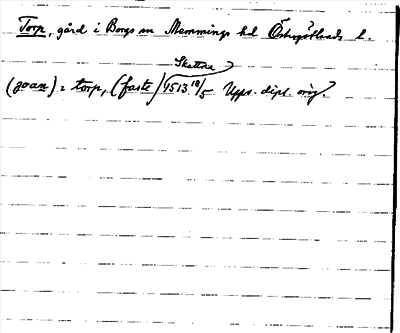 Torp, gård i Borgs sn Memmings hd Östergötlands l.
Skattar?
(joan) i torp, (faste) 1513 18/5 Upps. dipl. orig.